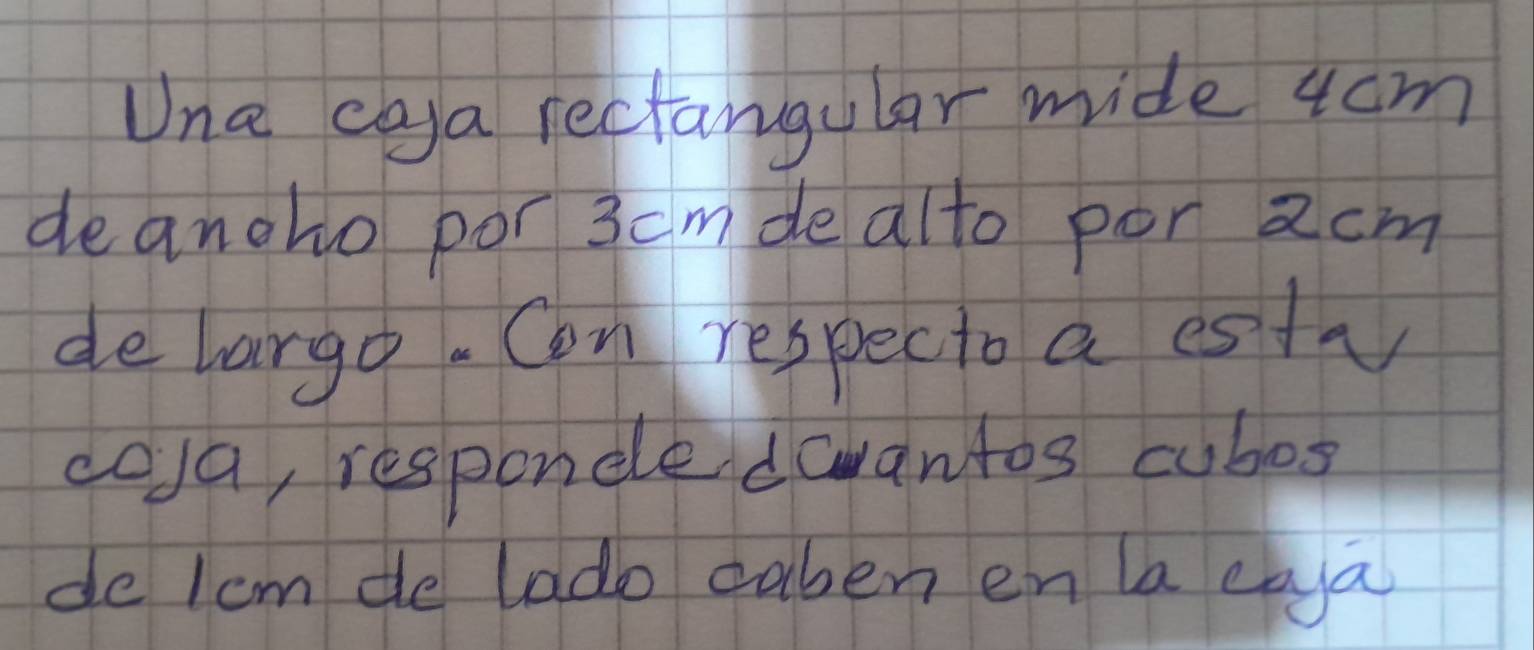 Una caja rectangular mide 4cm
de ancho por 3cm de alto por 2cm
de largo. Con respecto a esta
caja, responde ¿cuantos cubos
de 1cm de lado caben en la caja